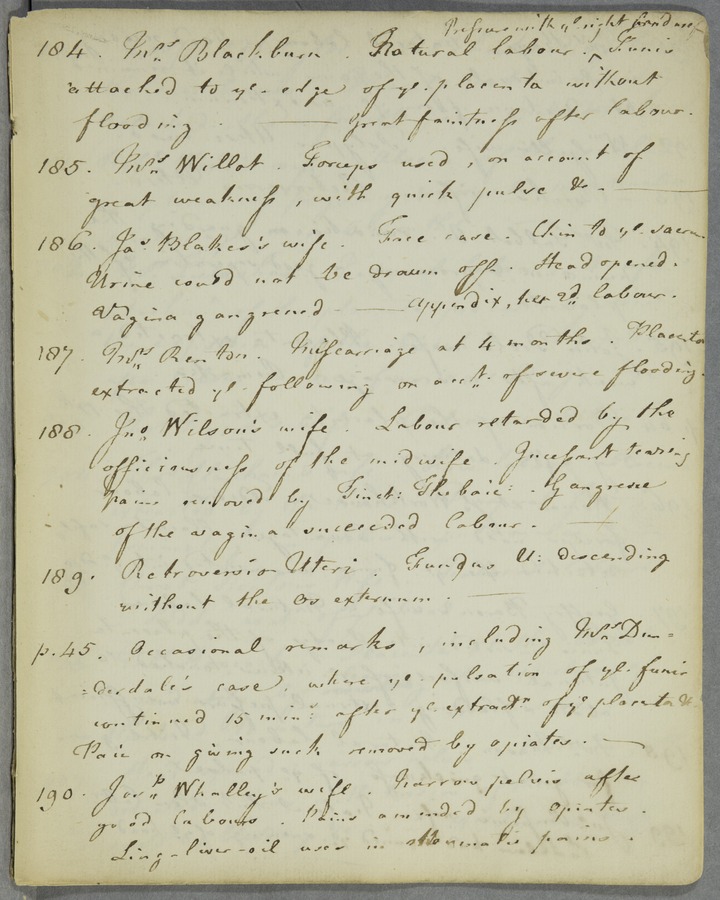 Pressure with yᵉ right hand used
184. Mrs Blackburn. Natural labour. ^ Funis
attached to ye. edge of ye. placenta without
flooding. — great faintness after labour.
185. Mrs Willot. Forceps used, on account of
great weakness, with quick pulse &c. —
186. Jas Blakes's wife. Face case. Chin to ye. sacrum.
Urine could not be drawn off. Head opened.
Vagina gangrened — Appendix, her 2d labour.
187. Mrs Renton. Miscarriage at 4 months. Placenta
extracted ye. following on acct. of severe flooding.
188. Jno Wilson's wife. Labour retarded by the
officiousness of the midwife. Incessant teasing
Pains removed by Tinct: Thebaic: . Gangrene
of the vagina succeeded labour. —
189. Retroversio Uteri. Fundus U: descending
without the Os externum. —
p.45. Occasional remarks, including Mrs Dun=
=derdale's case, where ye. pulsation of ye. funis
continued 15 mins: after ye. extractn of ye placenta &c
Pain on giving suck removed by opiates. —
190. Josph Whalley's wife. Narrow pelvis after
good labours. Pains amended by opiates.
Ling-liver-oil used in rheumatic pains.